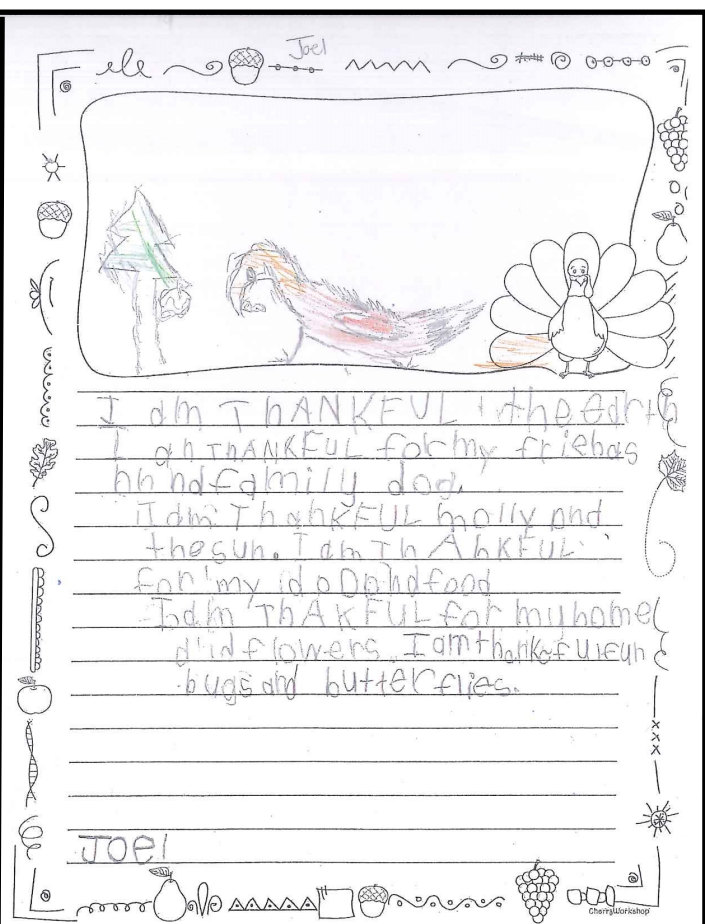 Joel
I am ThANKFUL the Earth
I an ThANKFUL for my friends
and family dog.
I am ThahKFUL molly and
the sun. I am ThAhKFUL
for my and food
I am ThAKFUL for my home
and flowers. I am thankeful fun
bugs and butterflies.
Joel
CherryWorkshop